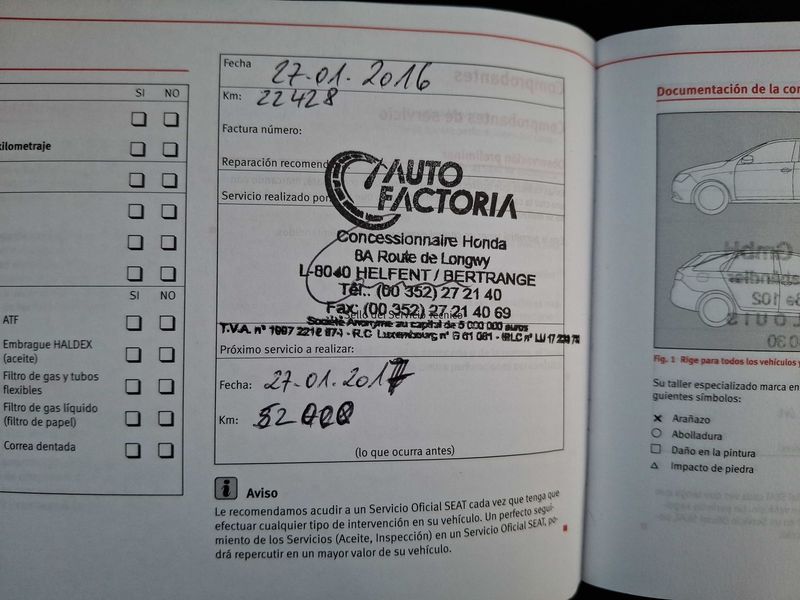 SI NO
kilometraje
SI NO
ATF
Embrague HALDEX
(aceite)
Filtro de gas y tubos
flexibles
Filtro de gas líquido
(filtro de papel)
Correa dentada
Fecha 27.01.2016
Km: 22428
Factura número:
Reparación recomend
Servicio realizado por
AUTO
FACTORIA
Concessionnaire Honda
8A Route de Longwy
L-8040 HELFENT / BERTRANGE
Tél.: (00 352) 27 21 40
Fax: (00 352) 27 21 40 69
Sello del Servicio Técnico
Société Anonyme au capital de 5 000 000 euros
T.V.A. n° 1997 2218 874 - R.C. Luxembourg n°
Próximo servicio a realizar:
Fecha: 27.01.2017
Km: 52 000
(lo que ocurra antes)
i Aviso
Le recomendamos acudir a un Servicio Oficial SEAT cada vez que tenga que
efectuar cualquier tipo de intervención en su vehículo. Un perfecto segui-
miento de los Servicios (Aceite, Inspección) en un Servicio Oficial SEAT, po-
drá repercutir en un mayor valor de su vehículo.
Documentación de la con
Fig. 1 Rige para todos los vehículos
Su taller especializado marca en
guientes símbolos:
Arañazo
Abolladura
Daño en la pintura
Impacto de piedra